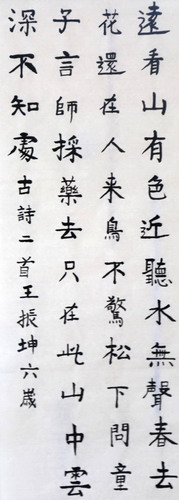 遠看山有色近聽水無聲春去
花還在人来鳥不驚松下問童
子言師採藥去只在此山中雲
深不知處古詩二首王振坤六歲